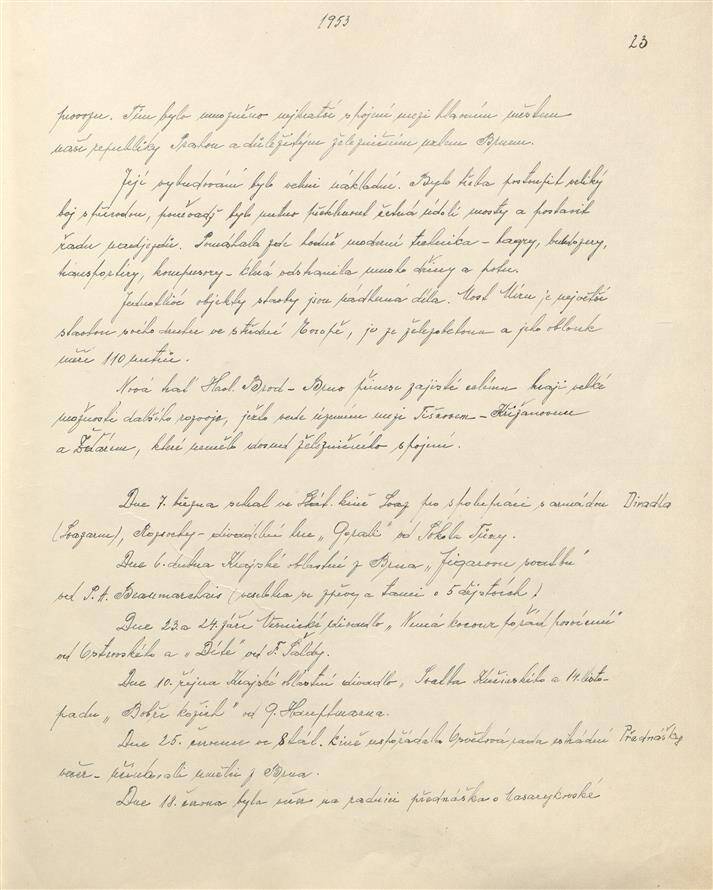 1953
23
provozu. Tím bylo umožněno nejkratší spojení mezi hlavním městem
naší republiky Prahou a důležitým železničním uzlem Brnem.
Její vybudování bylo velmi nákladné. Bylo třeba postoupit veliký
boj s přírodou, poněvadž bylo nutno překlenout četná údolí mosty a postavit
řadu nadjezdů. Pomáhala zde hodně moderní technika – bagry, buldozery,
transportéry, kompresory – která odstranila mnoho dřiny a potu.
Jednotlivé objekty stavby jsou nádherná díla. Most Míru je největší
stavbou svého druhu ve střední Evropě, je ze železobetonu a jeho oblouk
měří 110 metrů.
Nová trať Havl. Brod – Brno přinese zajisté celému kraji velké
možnosti dalšího rozvoje, jelikož vede územím mezi Tišnovem – Křižanovem
a Žďárem, které nemělo dosud železničního spojení.
Dne 7. března sehrál ve Stát. kině Svaz pro spolupráci s armádou Divadla
(Svazarm), Rozsochy – divadelní hru „Gorali" od Sokola Tůmy.
Dne 6. dubna Krajské oblastní z Brna „Figarovu svatbu"
od P. A. Beaumarchais (veselohra se zpěvy a tanci o 5 dějstvích)
Dne 23. a 24. září Vesnické divadlo „Nemá kocour pořád posvícení"
od Ostrovského a „Dítě" od F. Šaldy.
Dne 10. října Krajské oblastní divadlo „Svatba Krečinského a 14. listo-
padu „Bobří kožich" od G. Hauptmanna.
Dne 25. června ve Stát. kině uspořádala Osvětová rada estrádní Přednášky
večer – účinkovali umělci z Brna.
Dne 18. února byla večer na radnici přednáška o Masarykovské